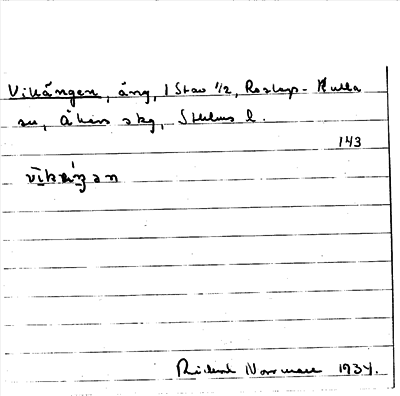 Vikängen, äng, 1 Stav 1/2, Roslags-Kulla
sn, Åkers skg, Sthlms l.
143
vikäŋan
Rickard Norrman 1934.